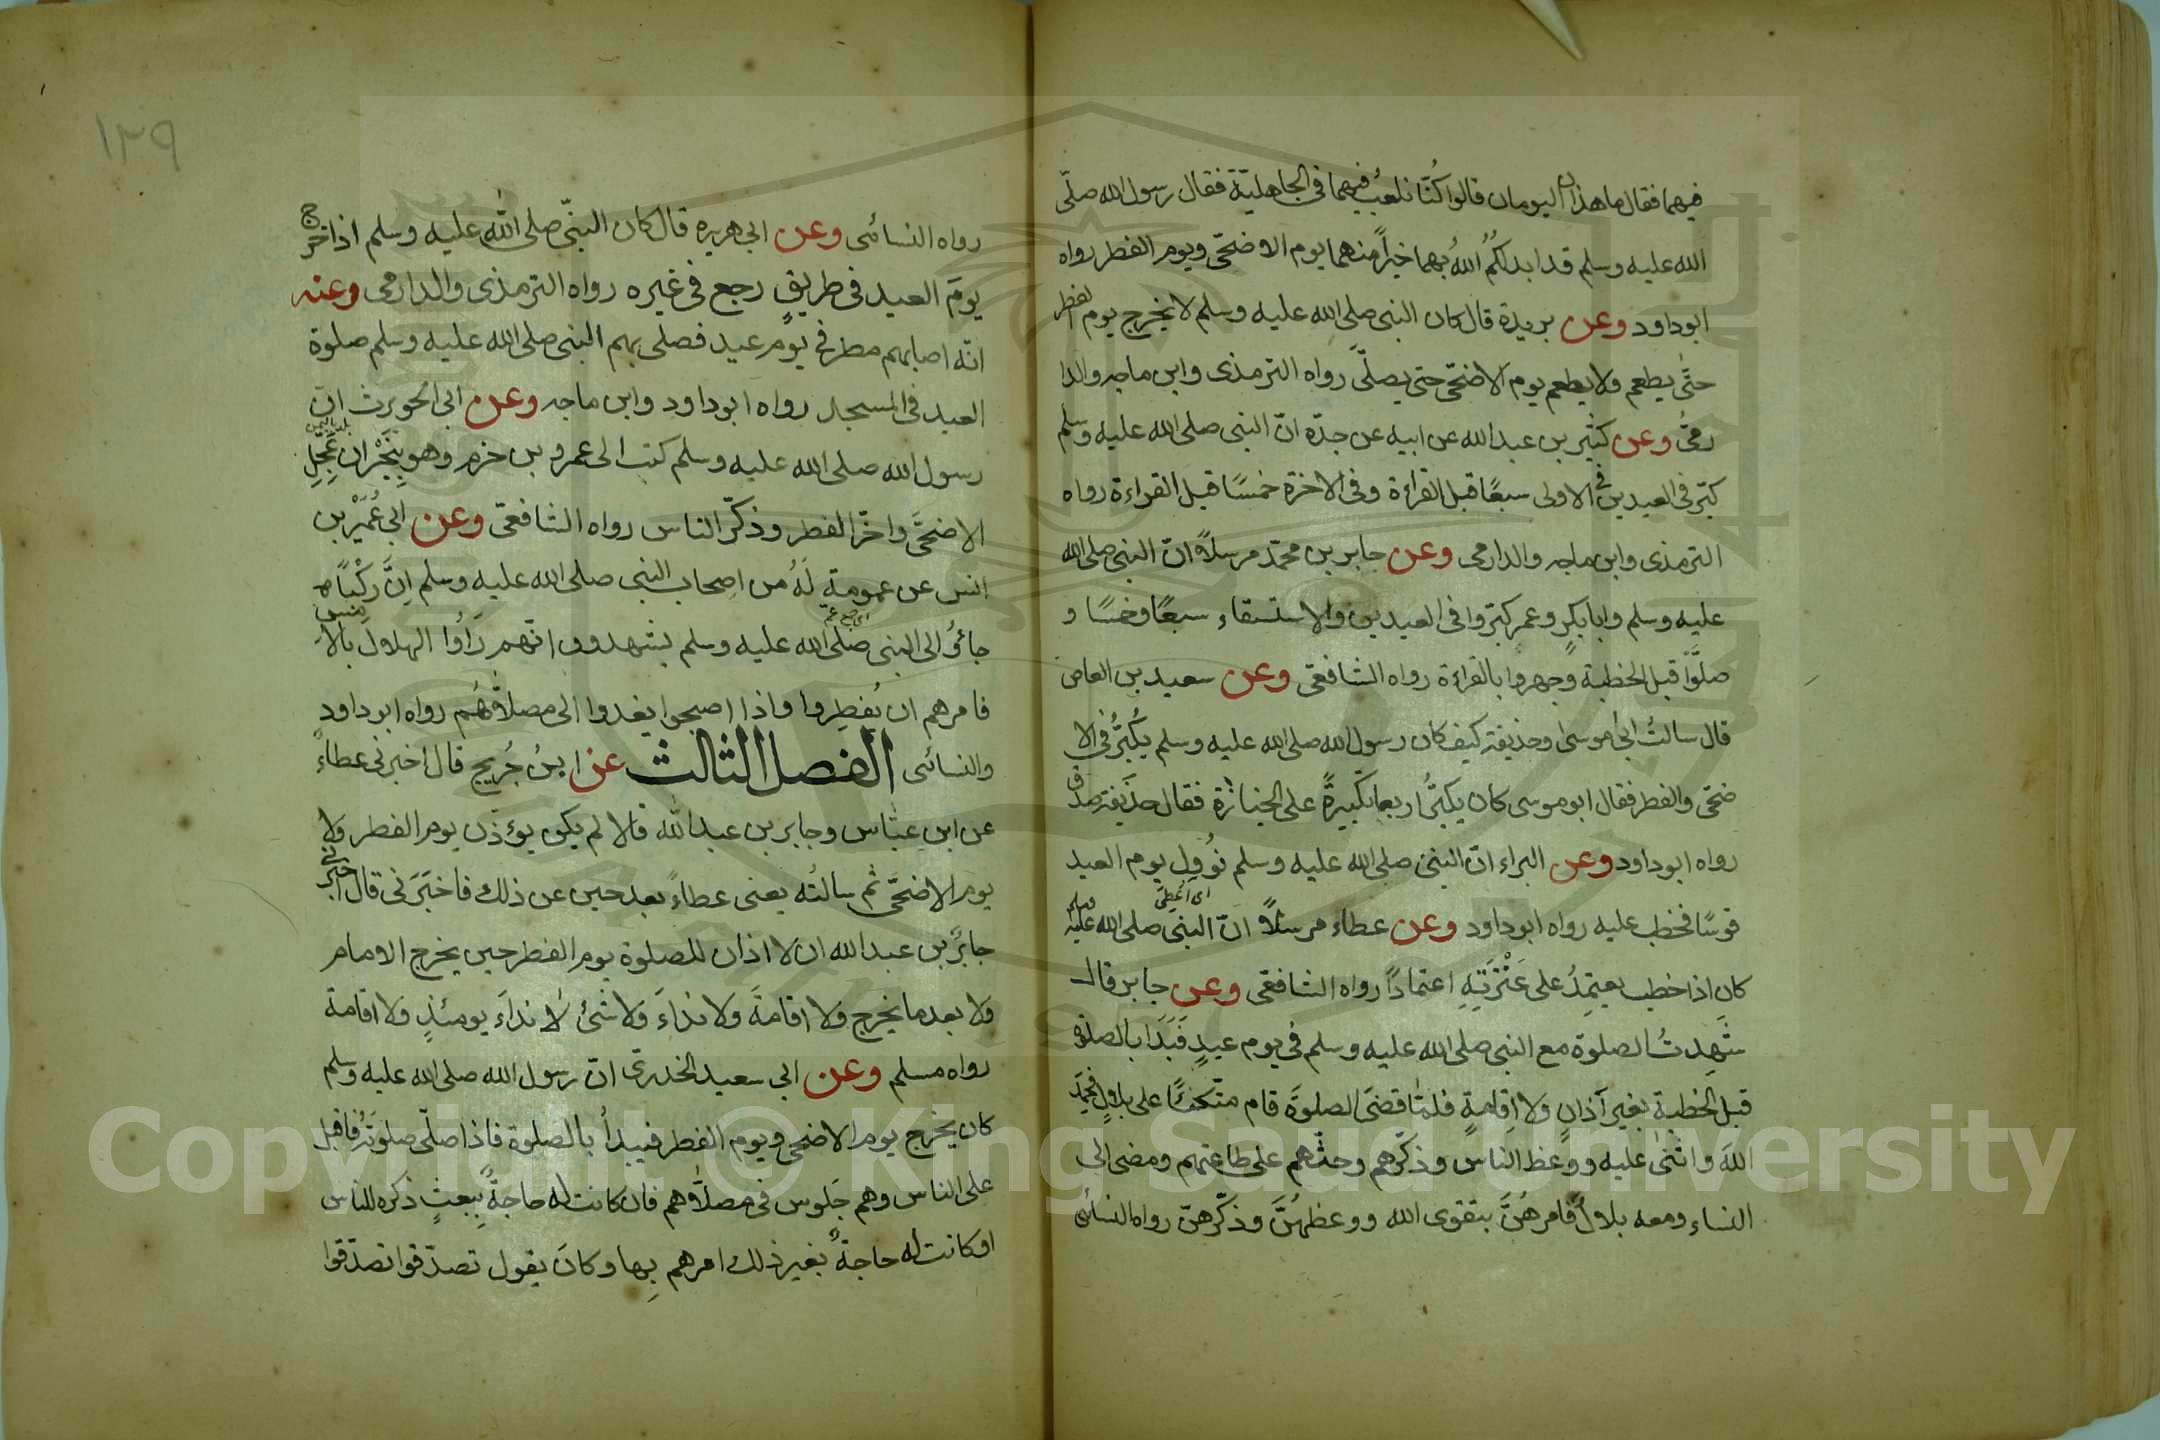 فيهما فقال ما هذان اليومان قالوا كُنّا نلعبُ فيهما في الجاهليّة فقال رسول الله صلّى
الله عليه وسلم قد ابدلكُمُ اللهُ بهما خيراً منهما يوم الاضحى ويوم الفطر رواه
ابو داود وعن بريدة قال كان النبي صلى الله عليه وسلم لا يخرج يوم الفطر
حتّٰى يطعم ولا يطعم يوم الاضحى حتى يصلّى رواه الترمذى وابن ماجه والدا
رمىُّ وعن كثير بن عبد الله عن ابيه عن جدّه انّ النبى صلى الله عليه وسلم
كبّر في العيدين في الاولى سبعًا قبل القراءة وفى الاخرة خمسًا قبل القراءة رواه
الترمذى وابن ماجه والدارمى وعن جابر بن محمّد مرسلاً انّ النبى صلى الله
عليه وسلم وابا بكرٍ وعمر كبّروا فى العيدين والاستسقاء سبعًا وخمسًا و
صلَّوْا قبل الخطبة وجهروا بالقراءة رواه الشافعى وعن سعيد بن العاص
قال سالتُ ابى موسىٰ وحذيفة كيف كان رسول الله صلى الله عليه وسلم يُكبّرُ فى الا
ضحى والفطر فقال ابو موسى كان يكبّرُ اربعا تكبيرةً على الجنازة فقال حذيفة صدق
رواه ابو داود وعن البراء انّ النبى صلى الله عليه وسلم نُووِلَ يوم العيد
اى اُعطِىَ
قوسًا فخطب عليه رواه ابو داود وعن عطاء مرسلاً انّ النبى صلى الله عليه وسلم
كان اذا خطب يعتمِدُ على عَنَزَتِهِ اعتمادًا رواه الشافعى وعن جابر قال
شَهِدتُ الصلوة مع النبى صلى الله عليه وسلم فى يوم عيدٍ فَبَدَا بالصلوة
قبل الخطبة بغير آذانٍ ولا اِقامةٍ فلمّا قضَى الصلوةَ قام متّكئًا على بلالٍ فحمِدَ
اللهَ واثنىٰ عليه ووعظ الناس وذكّرهم وحثّهم على طاعتهم ومضى الى
النساء ومعه بلالٌ فامرهُنَّ بتقوى الله ووعظهُنَّ وذكّرهنّ رواه النسائى
١٢٩
رواه النسائى وعن ابى هريره قال كان النبّى صلى الله عليه وسلم اذا خرج
يومَ العيد فى طريقٍ رجع فى غيره رواه الترمذى والدارمى وعنه
انّه اصابهم مطر فى يوم عيد فصلى بهم النبى صلى الله عليه وسلم صلوة
العيد فى المسجد رواه ابو داود وابن ماجه وعن ابى الحويرث ان
رسول الله صلى الله عليه وسلم كتب الى عمرو بن خزم وهو بِنَجْرَان عَجِّلِ
الاضحَى واخّر الفطر وذكّر الناس رواه الشافعى وعن ابى عُمَيْر بن
انس عن عمومة لَهُ من اصحاب النبى صلى الله عليه وسلم اِنَّ رَكْبًا
جائوُ الى النبى صلى الله عليه وسلم يشهدون انّهم رَاَوُا الهلال بالا
مس
فامرهم ان يُفطِروا واذا اصبحوا يغدوا الى مصلاّهُم رواه ابو داود
والنسائى الفصل الثالث عن ابنُ جُريج قال اخبرنى عطاءٌ
عن ابن عبّاس وجابر بن عبد الله قالا لم يكن يوءذّن يوم الفطر ولا
يوم الاضحى ثم سالتُه يعنى عطاءً بعد حين عن ذلك فاخبَرَنى قال اخبرنى
جابرُ بن عبد الله ان لا اذان للصلوة يوم الفطر حين يخرج الامام
ولا بعد ما يخرج ولا اقامةَ ولا نداءَ ولا شئَ لا نداءَ يومئذٍ ولا اقامة
رواه مسلم وعن ابى سعيد الخدرى انّ رسول الله صلى الله عليه وسلم
كان يخرج يوم الاضحى ويوم الفطر فيبدأ بالصلوة فاذا صلّى صلوتَهُ فاقبل
على الناس وهم جَلوس فى مصلاّهم فان كانت له حاجةٌ ببعثٍ ذكره للناس
او كانت له حاجةٌ بغير ذلك امرهم بِها وكانَ يقول تصدّقوا تصدّقوا
Copyright © King Saud University